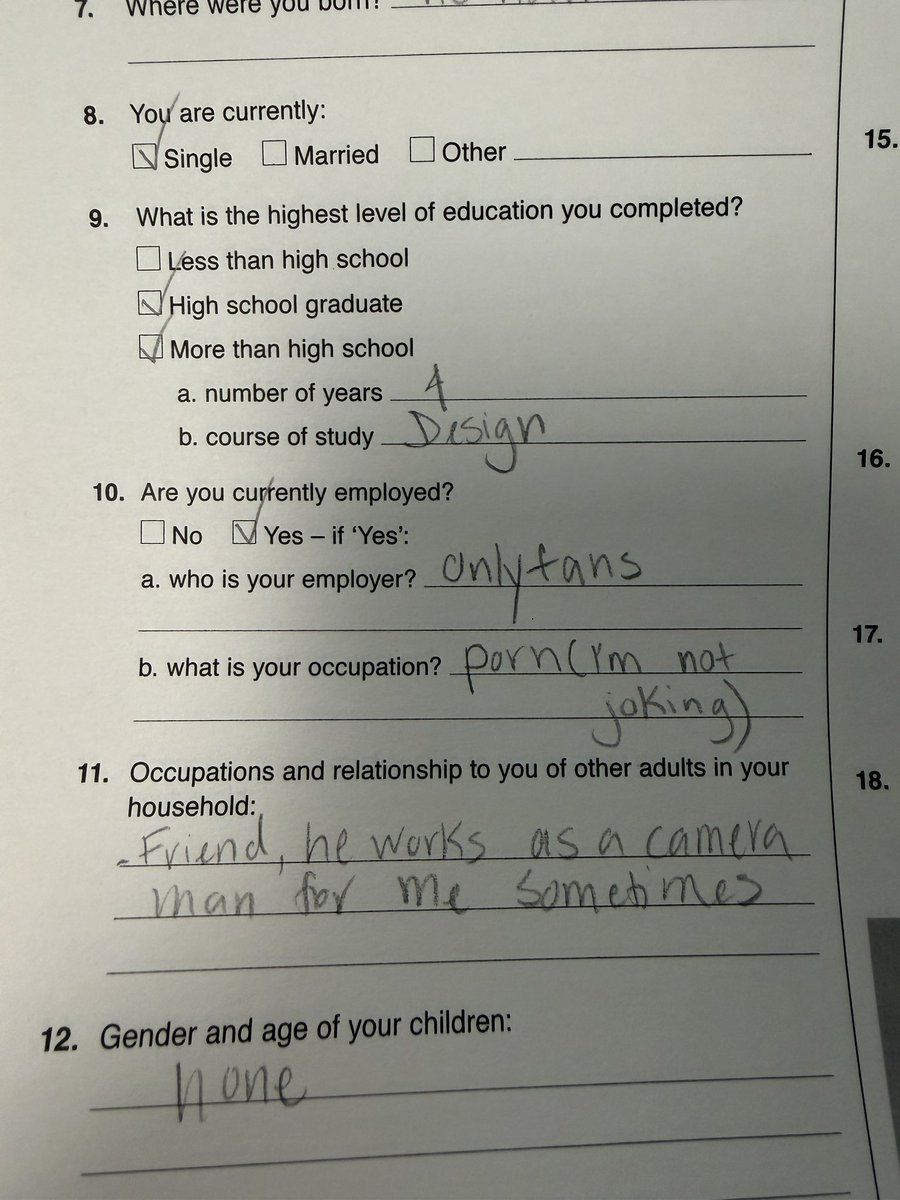 7. Where were you born?
8. You are currently:
Single Married Other
9. What is the highest level of education you completed?
Less than high school
High school graduate
More than high school
a. number of years 4
b. course of study Design
10. Are you currently employed?
No Yes – if ‘Yes’:
a. who is your employer? onlyfans
b. what is your occupation? porn (I'm not
joking)
11. Occupations and relationship to you of other adults in your
household:
- Friend, he works as a camera
man for me sometimes
12. Gender and age of your children:
none
15.
16.
17.
18.